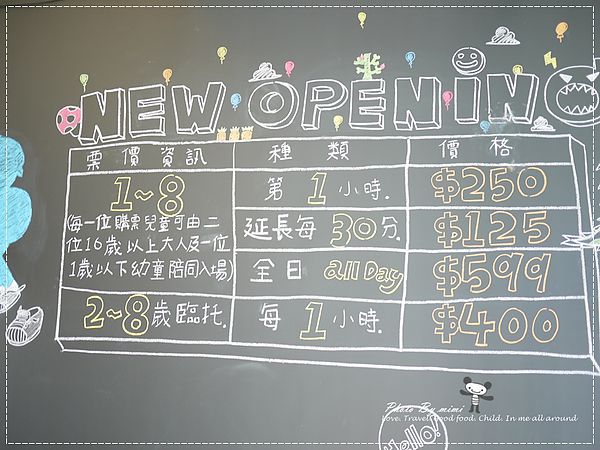 NEW OPENIN
票價資訊 種類 價格
1~8 第1小時. $250
(每一位購票兒童可由二
位16歲以上大人及一位
1歲以下幼童陪同入場)
延長每30分. $125
全日 all Day $599
2~8歲臨托. 每1小時. $400
Photo By mimi
Love. Travel. Good food. Child. In me all around
Hello!